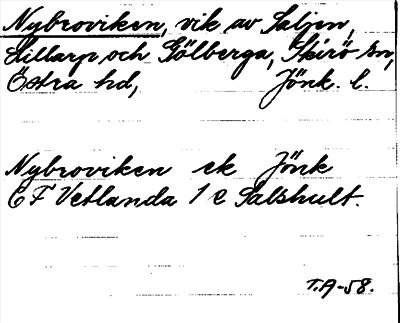 Nybroviken, vik av Saljen,
Lillarp och Gölberga, Skirö sn,
Östra hd, Jönk. l.
Nybroviken ek Jönk
C F Vetlanda 1 e Salshult.
T.A-58.